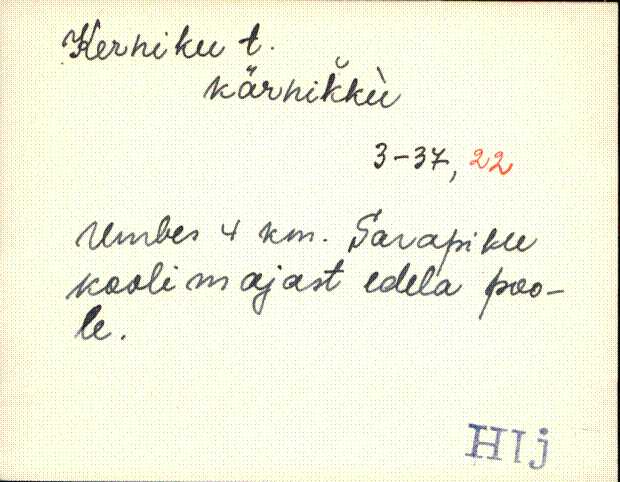 Kerniku t.
kärnik̆kù
3-37, 22
Umbes 4 km. Sarapiku
koolimajast edela poo-
le.
HIj